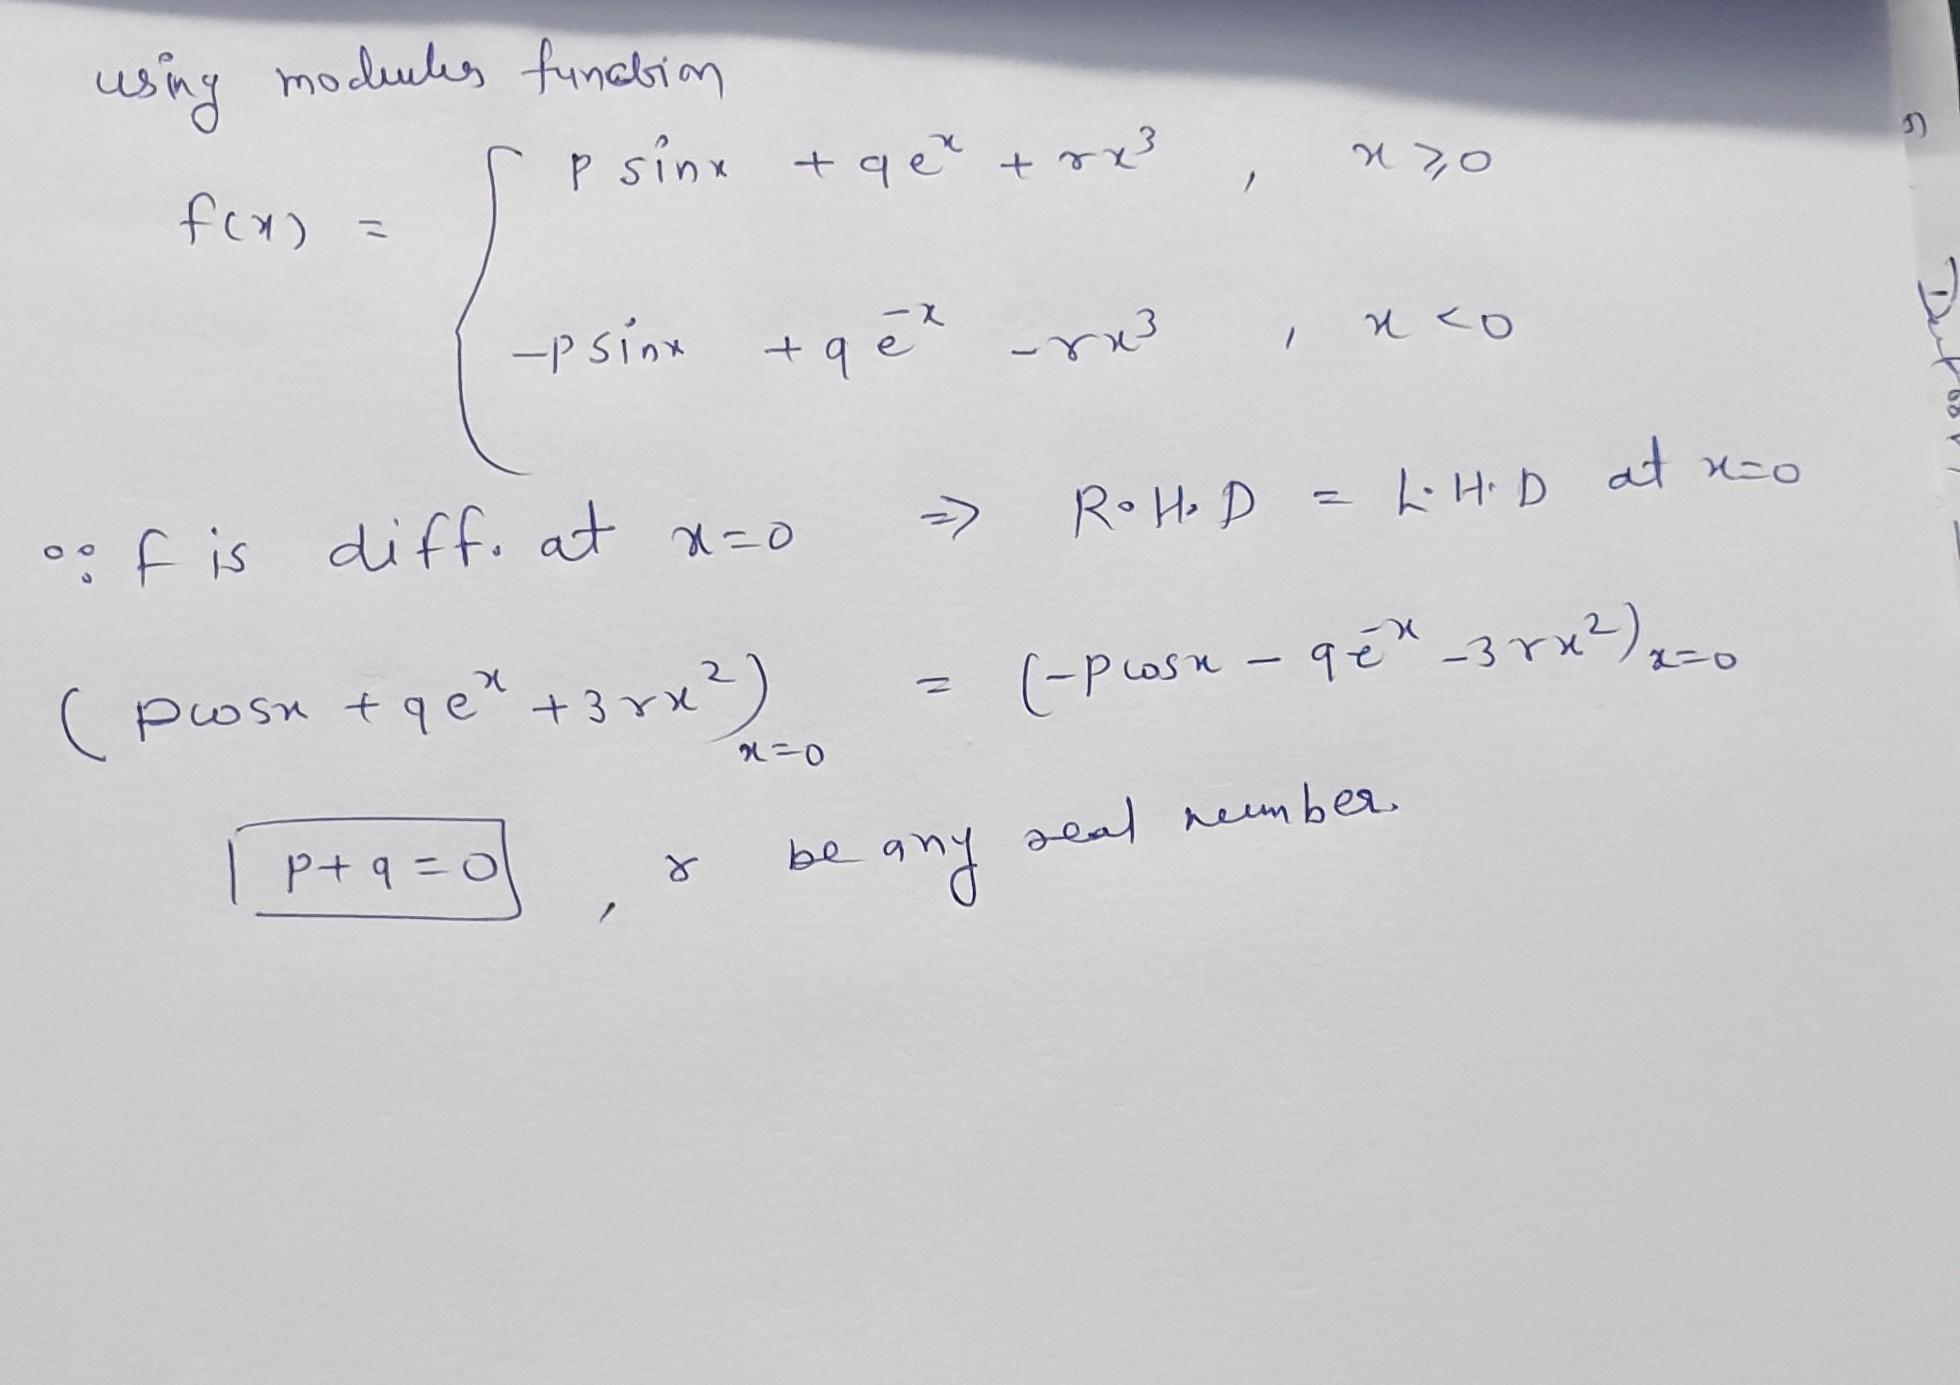 using modulus function
f(x) = { p sinx + qe^x + rx^3 , x ⩾ 0
-p sinx + qe^-x - rx^3 , x < 0
∵ f is diff. at x=0 ⇒ R.H.D = L.H.D at x=0
(p cosx + qe^x + 3rx^2)x=0 = (-p cosx - qe^-x - 3rx^2)x=0
p+q=0 , r be any real number.